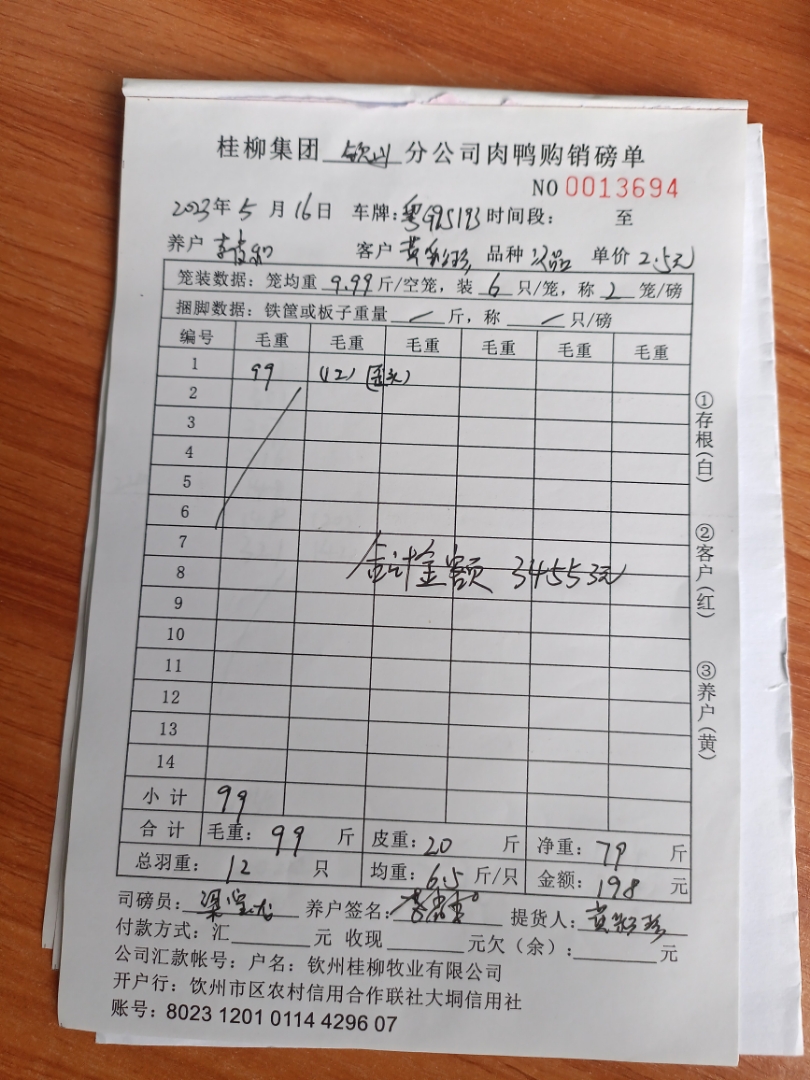 桂柳集团 钦州 分公司肉鸭购销磅单
NO 0013694
2023年 5 月 16日 车牌: 粤G95193 时间段: 至
养户 客户 黄彩珍 品种 次品 单价 2.5元
笼装数据: 笼均重 9.99 斤/空笼, 装 6 只/笼, 称 2 笼/磅
捆脚数据: 铁筐或板子重量 / 斤, 称 / 只/磅
编号 毛重 毛重 毛重 毛重 毛重 毛重
1 99 (12)
2
3
4
5
6
7
合计金额 34553元
8
9
10
11
12
13
14
小 计 99
合 计 毛重: 99 斤 皮重: 20 斤 净重: 79 斤
总羽重: 12 只 均重: 6.5 斤/只 金额: 198 元
司磅员: 养户签名: 提货人: 黄彩珍
付款方式: 汇 元 收现 元欠(余): 元
公司汇款帐号: 户名: 钦州桂柳牧业有限公司
开户行: 钦州市区农村信用合作联社大垌信用社
账号: 8023 1201 0114 4296 07
①存根(白)
②客户(红)
③养户(黄)